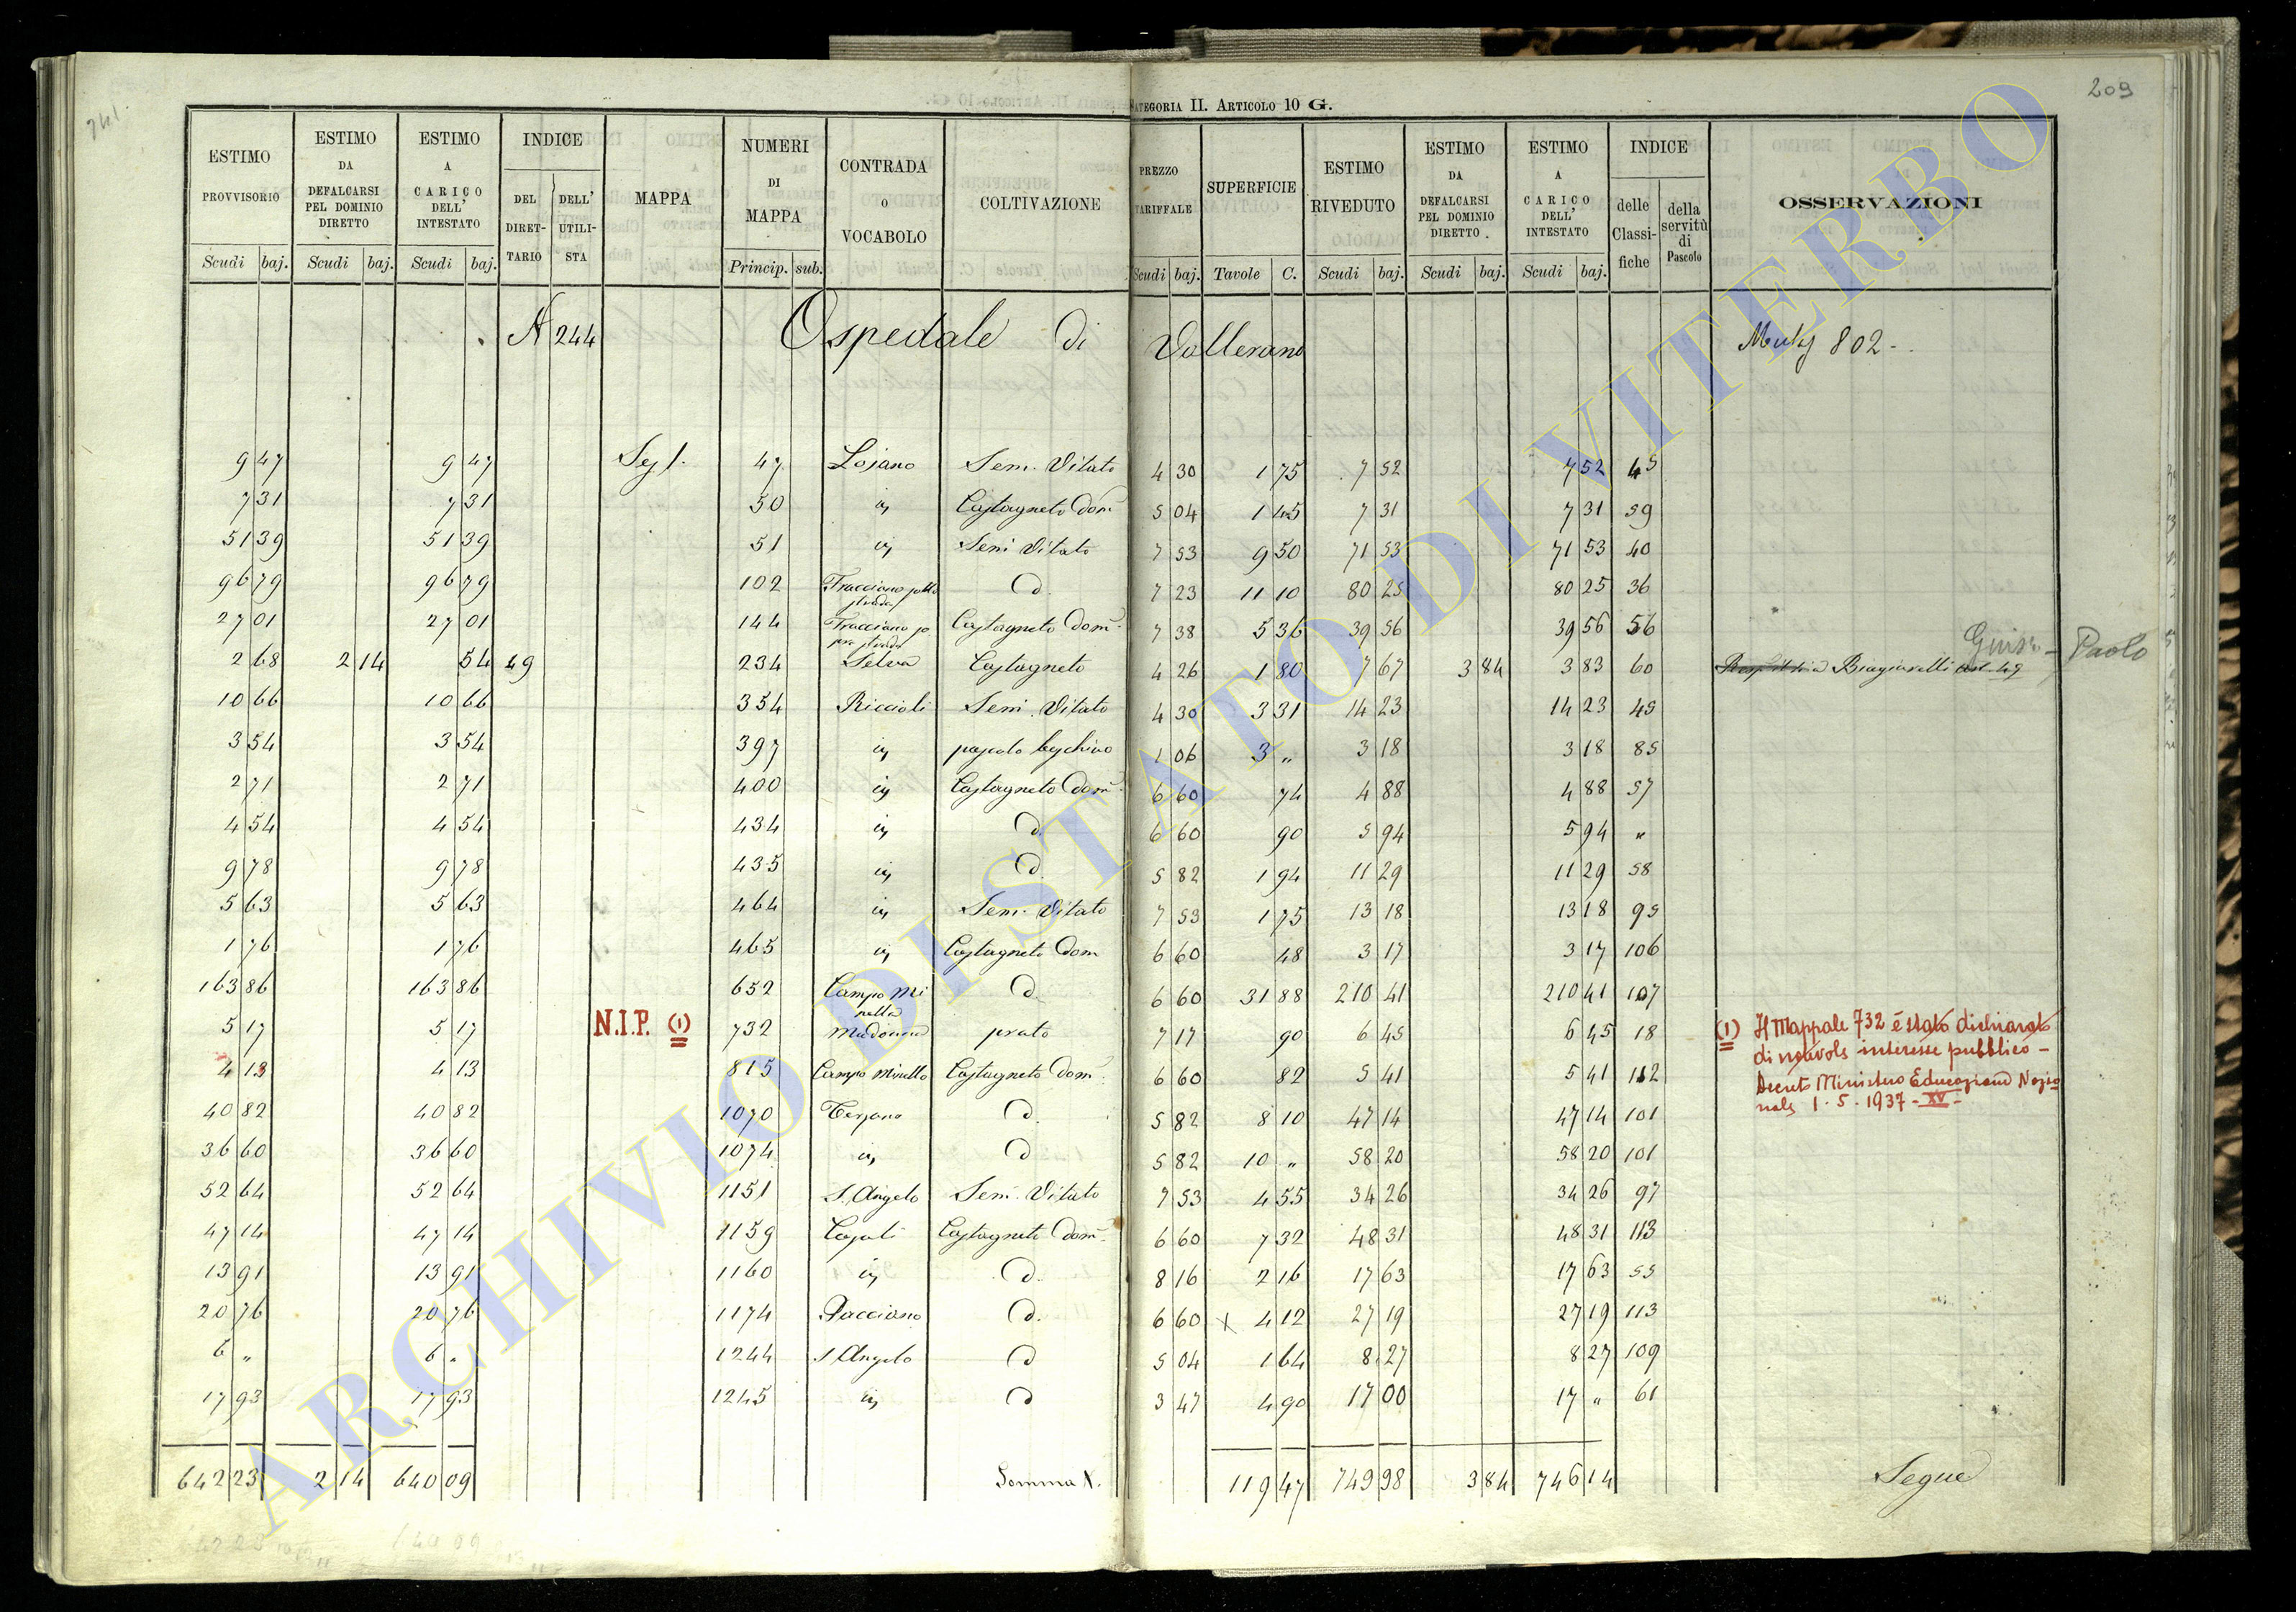 741
209
CATEGORIA II. ARTICOLO 10 G.
ESTIMO PROVVISORIO Scudi baj. | ESTIMO DA DEFALCARSI PEL DOMINIO DIRETTO Scudi baj. | ESTIMO A CARICO DELL' INTESTATO Scudi baj. | INDICE DEL DIRETTARIO DELL' UTILISTA | MAPPA | NUMERI DI MAPPA Princip. sub. | CONTRADA O VOCABOLO | COLTIVAZIONE | PREZZO TARIFFALE Scudi baj. | SUPERFICIE Tavole C. | ESTIMO RIVEDUTO Scudi baj. | ESTIMO DA DEFALCARSI PEL DOMINIO DIRETTO Scudi baj. | ESTIMO A CARICO DELL' INTESTATO Scudi baj. | INDICE delle Classifiche della servitù di Pascolo | OSSERVAZIONI
A 244 Ospedale di Vallerano 802
9 47 9 47 47 Lojano Sem. Vitato 4 30 1 75 7 52 7 52 45
7 31 7 31 50 Castagneto Dom 5 04 1 45 7 31 7 31 59
51 39 51 39 51 Sem Vitato 7 53 9 50 71 53 71 53 40
96 79 96 79 102 Tracciano sotto strada D. 7 23 11 10 80 25 80 25 36
27 01 27 01 144 Tracciano so pra strada Castagneto Dom 7 38 5 36 39 56 39 56 56
2 68 2 14 54 49 234 Selva Castagneto 4 26 1 80 7 67 3 84 3 83 60 Biagiarelli Paolo
10 66 10 66 354 Riccioli Sem. Vitato 4 30 3 31 14 23 14 23 45
3 54 3 54 397 pascolo 1 06 3 " 3 18 3 18 85
2 71 2 71 400 Castagneto Dom 6 60 74 4 88 4 88 57
4 54 4 54 434 D. 6 60 90 5 94 5 94 "
9 78 9 78 435 D. 5 82 1 94 11 29 11 29 58
5 63 5 63 464 Sem. Vitato 7 53 1 75 13 18 13 18 95
1 76 1 76 465 Castagneto Dom 6 60 48 3 17 3 17 106
163 86 163 86 652 Campo Mi nella D. 6 60 31 88 210 41 210 41 107
5 17 5 17 N.I.P. (1) 732 Madonna prato 7 17 90 6 45 6 45 18 (1) Il Mappale 732 é stato dichiarato
di notevole interesse pubblico -
Decreto Ministero Educazione Nazio
nale 1.5.1937 - XV -
4 13 4 13 815 Campo Minello Castagneto Dom 6 60 82 5 41 5 41 112
40 82 40 82 1070 D. 5 82 8 10 47 14 47 14 101
36 60 36 60 1074 D 5 82 10 " 58 20 58 20 101
52 64 52 64 1151 S. Angelo Sem. Vitato 7 53 4 55 34 26 34 26 97
47 14 47 14 1159 Casali Castagneto Dom. 6 60 7 32 48 31 48 31 113
13 91 13 91 1160 D. 8 16 2 16 17 63 17 63 55
20 76 20 76 1174 Pacciano D. 6 60 x 4 12 27 19 27 19 113
6 " 6 " 1244 S. Angelo D 5 04 1 64 8 27 8 27 109
17 93 17 93 1245 D 3 47 4 90 17 00 17 " 61
642 23 2 14 640 09 Somma 119 47 749 98 3 84 746 14 Segue
ARCHIVIO DI STATO DI VITERBO